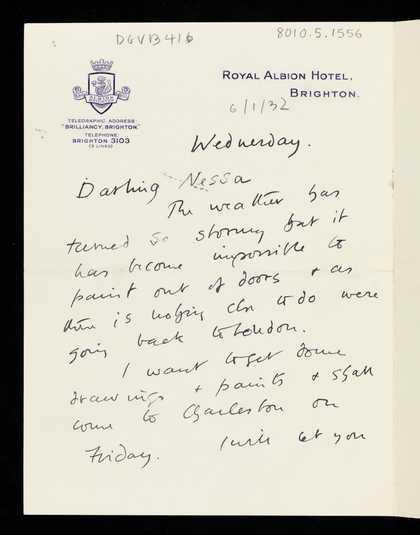 DGVB416
8010.5.1556
ALBION
TELEGRAPHIC ADDRESS
"BRILLIANCY, BRIGHTON."
TELEPHONE:
BRIGHTON 3103
(3 LINES)
ROYAL ALBION HOTEL,
BRIGHTON.
6/1/32
Wednesday.
Darling Nessa
The weather has
turned so stormy that it
has become impossible to
paint out of doors & as
there is nothing else to do we're
going back to London.
I want to get some
drawings & paints & shall
come to Charleston on
Friday. I will let you